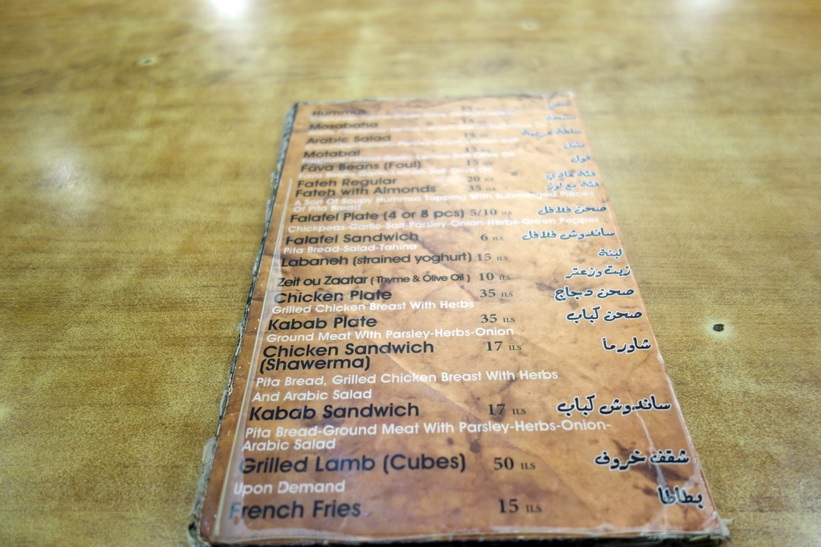 Hummus
Mosabaha
Arabic Salad
Motabar
Fava Beans (Foul) فول
Fateh Regular 20 ILS
Fateh with Almonds 35 ILS
A Sort Of Soupy Hummus Topping With Submerged Pieces
Of Pita Bread
Falafel Plate (4 or 8 pcs) 5/10 ILS صحن فلافل
Chickpeas-Garlic Salt-Parsley-Onion-Herbs-Green Pepper
Falafel Sandwich 6 ILS ساندوش فلافل
Pita Bread-Salad-Tahina
Labaneh (strained yoghurt) 15 ILS لبنة
Zeit ou Zaatar (Thyme & Olive Oil) 10 ILS زيت وزعتر
Chicken Plate 35 ILS صحن دجاج
Grilled Chicken Breast With Herbs
Kabab Plate 35 ILS صحن كباب
Ground Meat With Parsley-Herbs-Onion
Chicken Sandwich 17 ILS شاورما
(Shawerma)
Pita Bread, Grilled Chicken Breast With Herbs
And Arabic Salad
Kabab Sandwich 17 ILS ساندوش كباب
Pita Bread-Ground Meat With Parsley-Herbs-Onion-
Arabic Salad
Grilled Lamb (Cubes) 50 ILS شقف خروف
Upon Demand
French Fries 15 ILS بطاطا